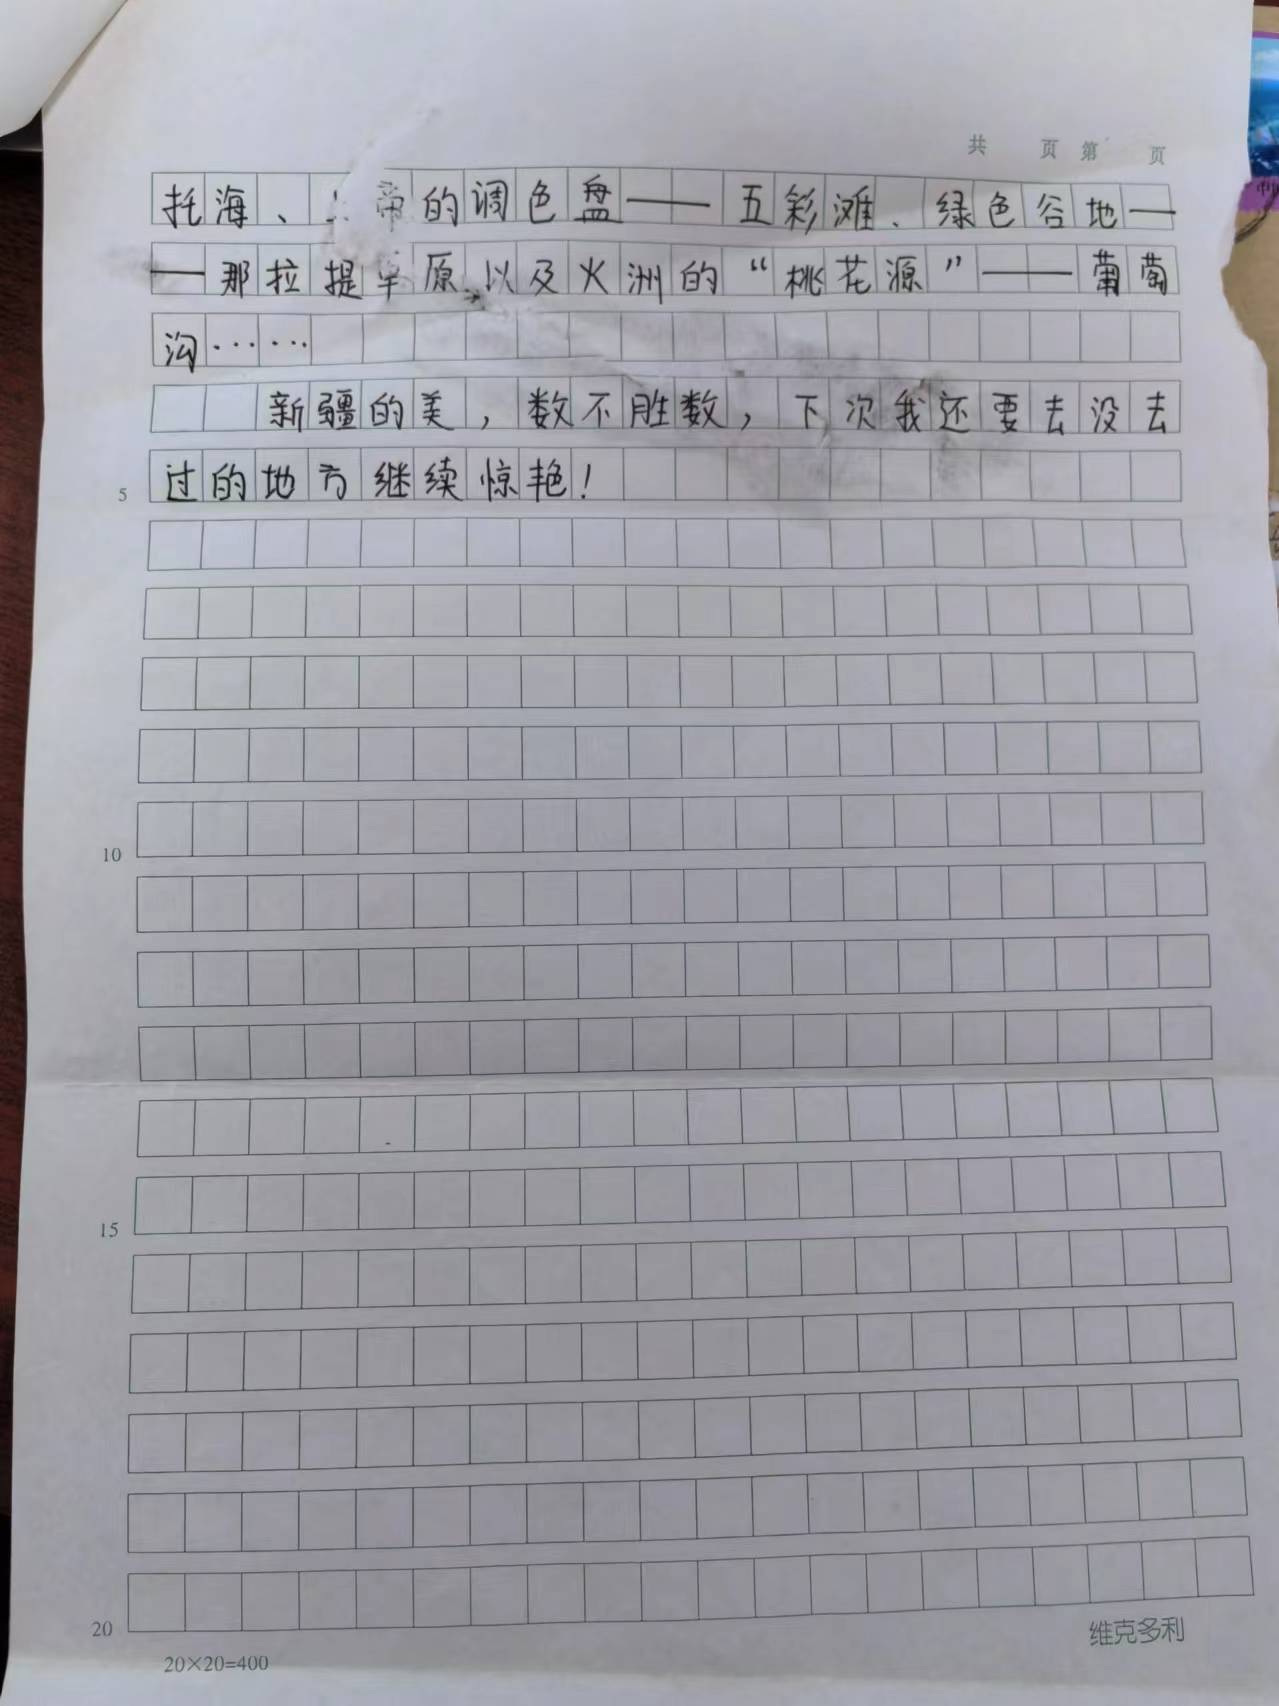 共 页 第 页
托海、帝的调色盘——五彩滩、绿色谷地—
—那拉提原以及火洲的“桃花源”——葡萄
沟……
新疆的美，数不胜数，下次我还要去没去
5 过的地方继续惊艳！
10
15
20
维克多利
20×20=400